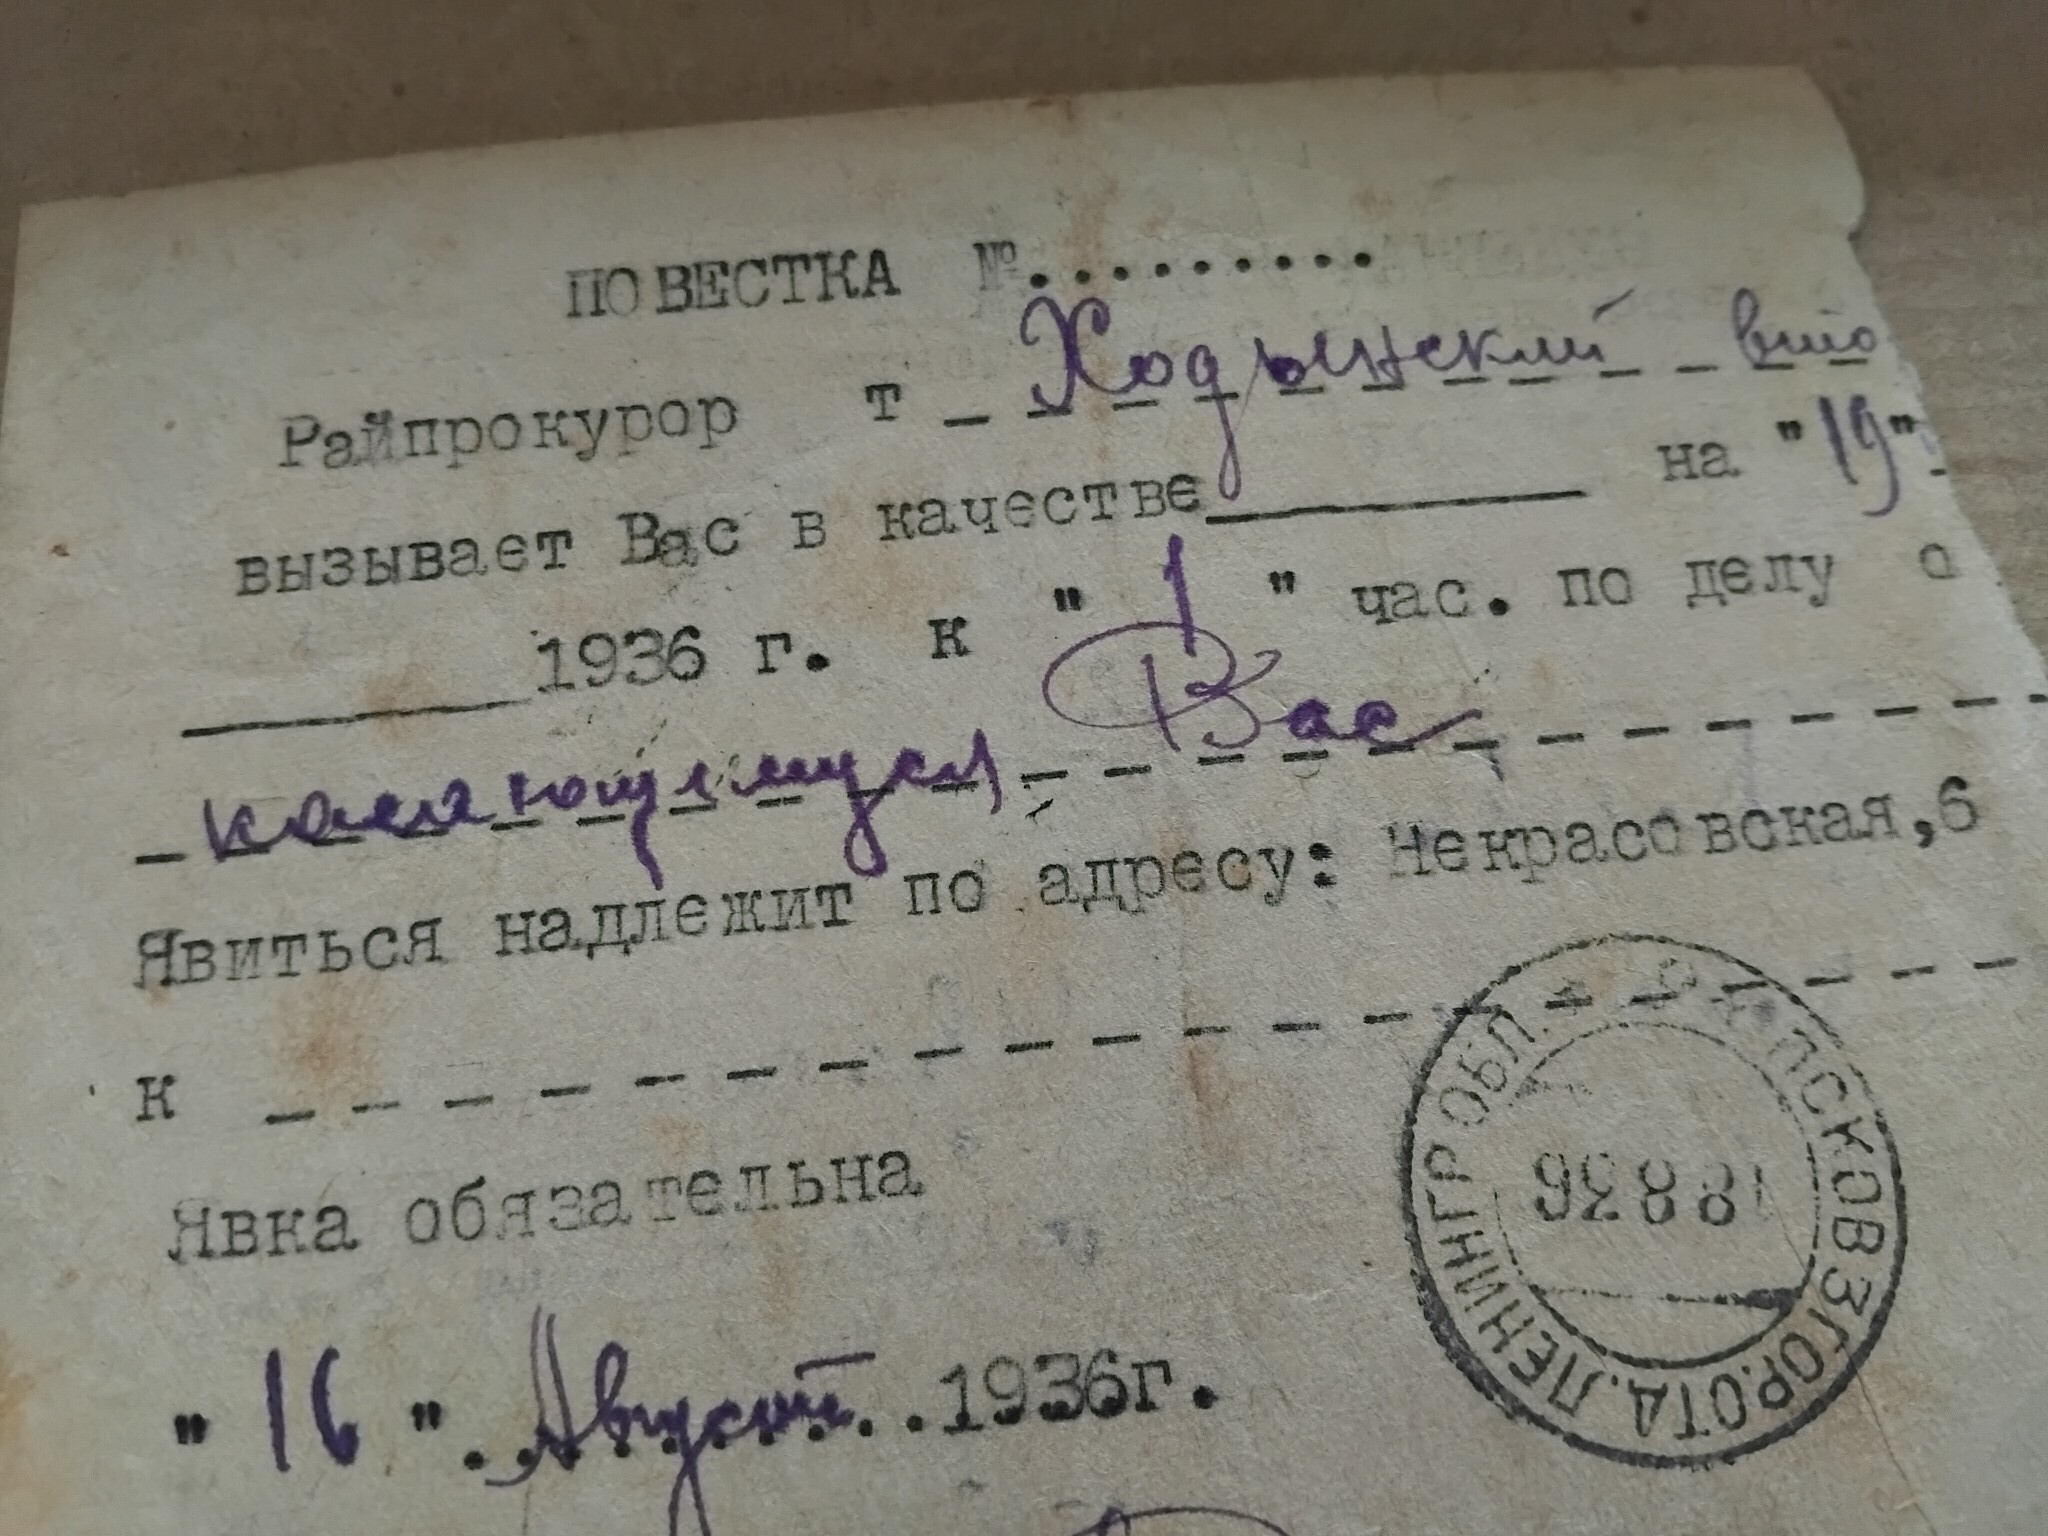 ПОВЕСТКА №..........
Райпрокурор т Ходынский
вызывает Вас в качестве на "19"
1936 г. к "1" час. по делу о
касающемуся Вас
Явиться надлежит по адресу: Некрасовская,6
к
Явка обязательна
"16" Август 1936г.
ПСКОВ 3 ГОР.ОТД. ЛЕНИНГР ОБЛ.
18 8 36